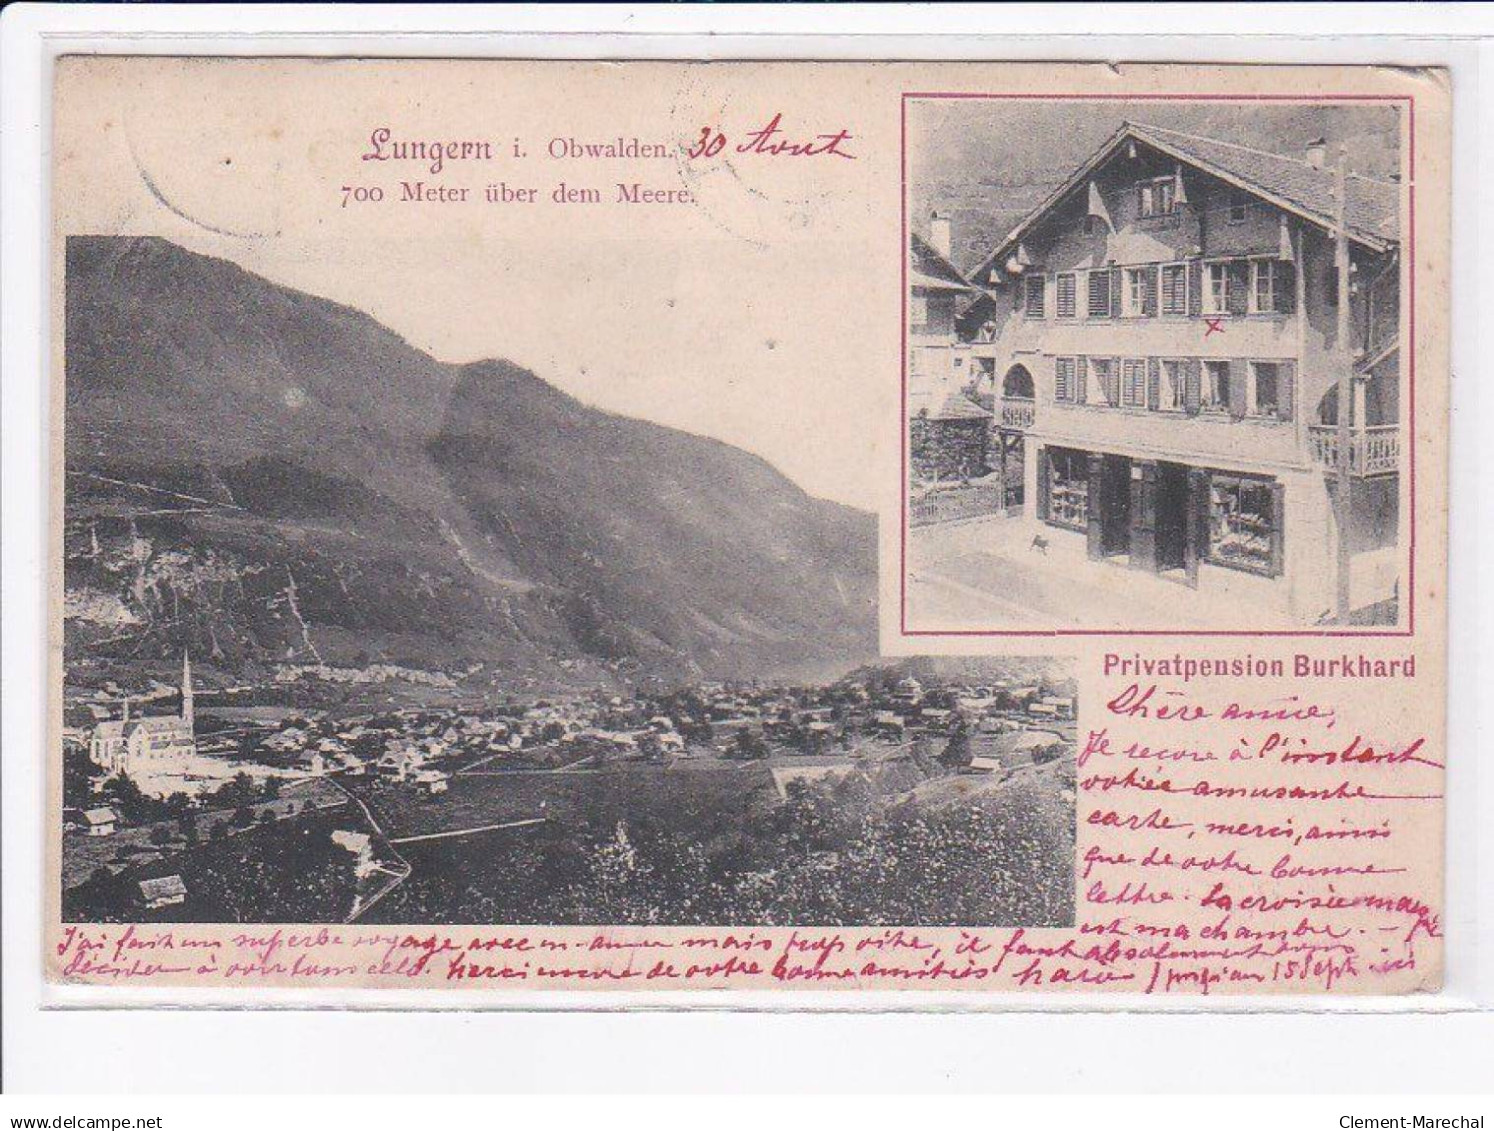 Lungern i. Obwalden. 30 Aout
700 Meter über dem Meere.
Privatpension Burkhard
Chère amie,
Je reçois à l'instant
votre amusante
carte, merci, ainsi
que de votre bonne
lettre. La croisée marquée
est ma chambre. -
J'ai fait un superbe voyage avec mais trop vite, il faut absolument vous
décider à voir tout cela. Merci encore de votre bonne amitiés jusqu'au 15 Sept. ici
delcampe.net
Clement-Marechal